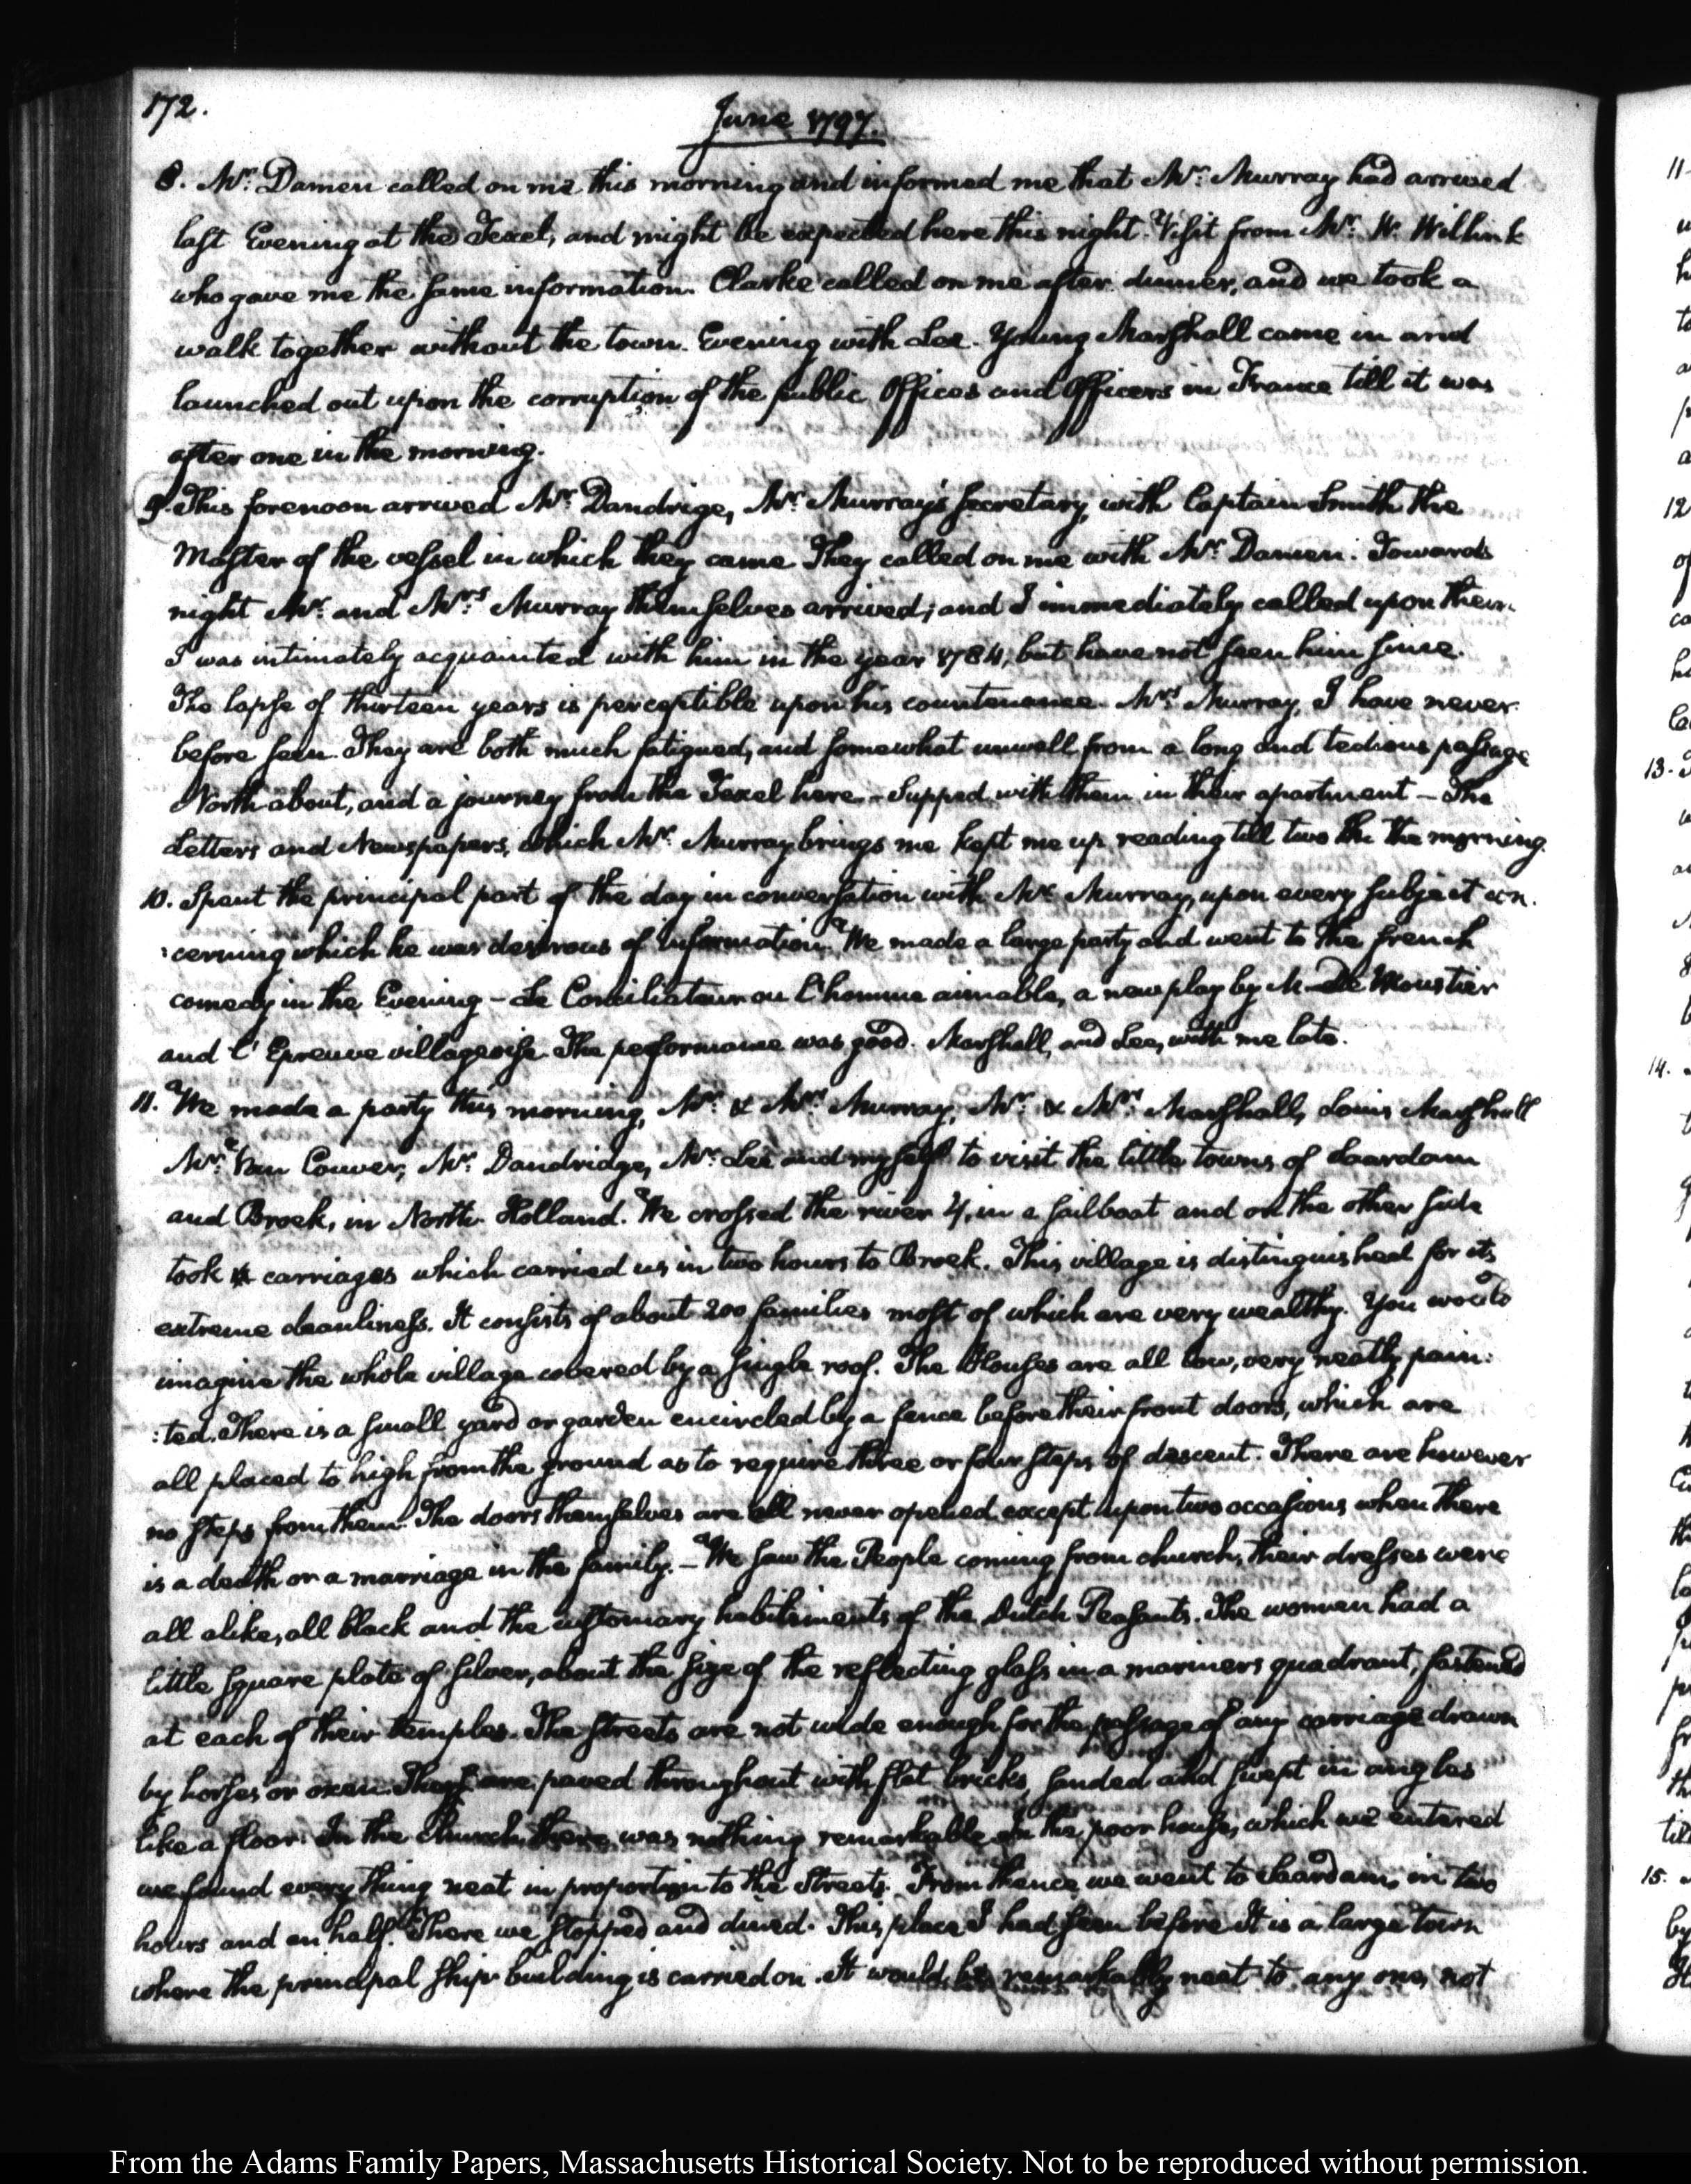 172.
June 1797.
8. Mr. Damen called on me this morning and informed me that Mr. Murray had arrived
last Evening at the Texel, and might be expected here this night. Visit from Mr. W. Willink
who gave me the same information. Clarke called on me after dinner, and we took a
walk together without the town. Evening with Lee. Young Marshall came in and
launched out upon the corruption of the public Offices and Officers in France till it was
after one in the morning.
9. This forenoon arrived Mr. Dandrige, Mr. Murray's Secretary, with Captain Smith the
Master of the vessel in which they came They called on me with Mr. Damen. Towards
night Mr. and Mrs. Murray themselves arrived; and I immediately called upon them.
I was intimately acquainted with him in the year 1784, but have not seen him since.
The lapse of thirteen years is perceptible upon his countenance. Mrs. Murray, I have never
before seen. They are both much fatigued, and somewhat unwell from a long and tedious passage
North about, and a journey from the Texel here. - Supped with them in their apartment - The
Letters and Newspapers, which Mr. Murray brings me kept me up reading till two in the morning.
10. Spent the principal part of the day in conversation with Mr. Murray, upon every subject con
:cerning which he was desirous of information. We made a large party and went to the french
comedy in the Evening - Le Conciliateur ou l'homme aimable, a new play by M. de Moustier
and l'Epreuve villageoise. The performance was good. Marshall, and Lee, with me late.
11. We made a party this morning, Mr. & Mrs. Murray, Mr. & Mrs. Marshall, Louis Marshall
Mr. Van Couver, Mr. Dandridge, Mr. Lee and myself to visit the little towns of Saardam
and Broek, in North Holland. We crossed the river Y, in a sailboat and on the other side
took carriages which carried us in two hours to Broek. This village is distinguished for its
extreme cleanliness. It consists of about 200 families most of which are very wealthy. You would
imagine the whole village covered by a single roof. The Houses are all low, very neatly pain:
:ted. There is a small yard or garden encircled by a fence before their front doors, which are
all placed to high from the ground as to require three or four steps of descent. There are however
no steps from them. The doors themselves are all never opened except upon two occasions when there
is a death or a marriage in the family. - We saw the People coming from church, their dresses were
all alike, all black and the customary habiliments of the Dutch Peasants. The women had a
little square plate of silver, about the size of the reflecting glass in a mariners quadrant, fastened
at each of their temples. The streets are not wide enough for the passage of any carriage drawn
by horses or oxen. They are paved throughout with flat bricks, sanded and swept in angles
like a floor. In the Church there was nothing remarkable in the poor house, which we entered
we found every thing neat in proportion to the Streets. From thence we went to Saardam, in two
hours and an half. There we stopped and dined. This place I had seen before It is a large town
where the principal ship building is carried on. It would be remarkably neat to any one, not
11
12
13.
14.
15.
From the Adams Family Papers, Massachusetts Historical Society. Not to be reproduced without permission.